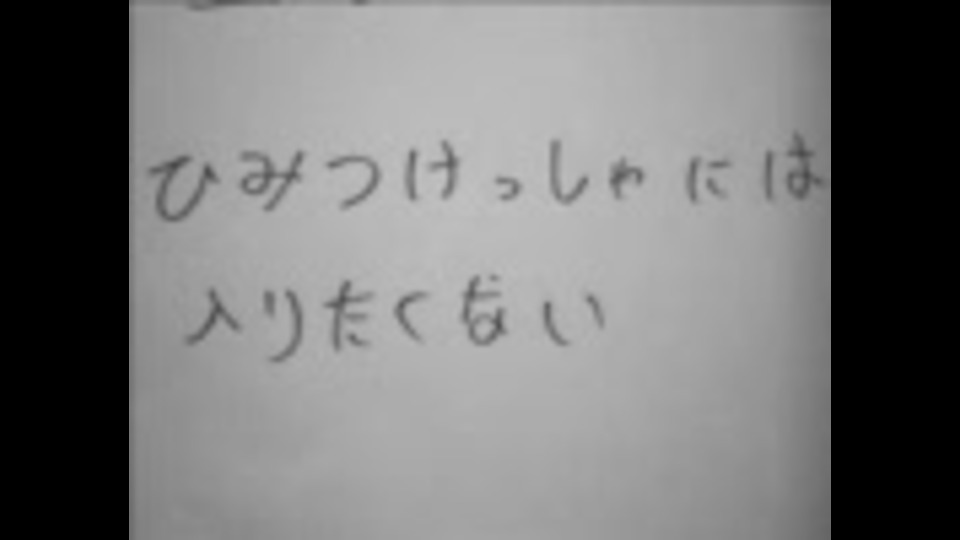 ひみつけっしゃには
入りたくない